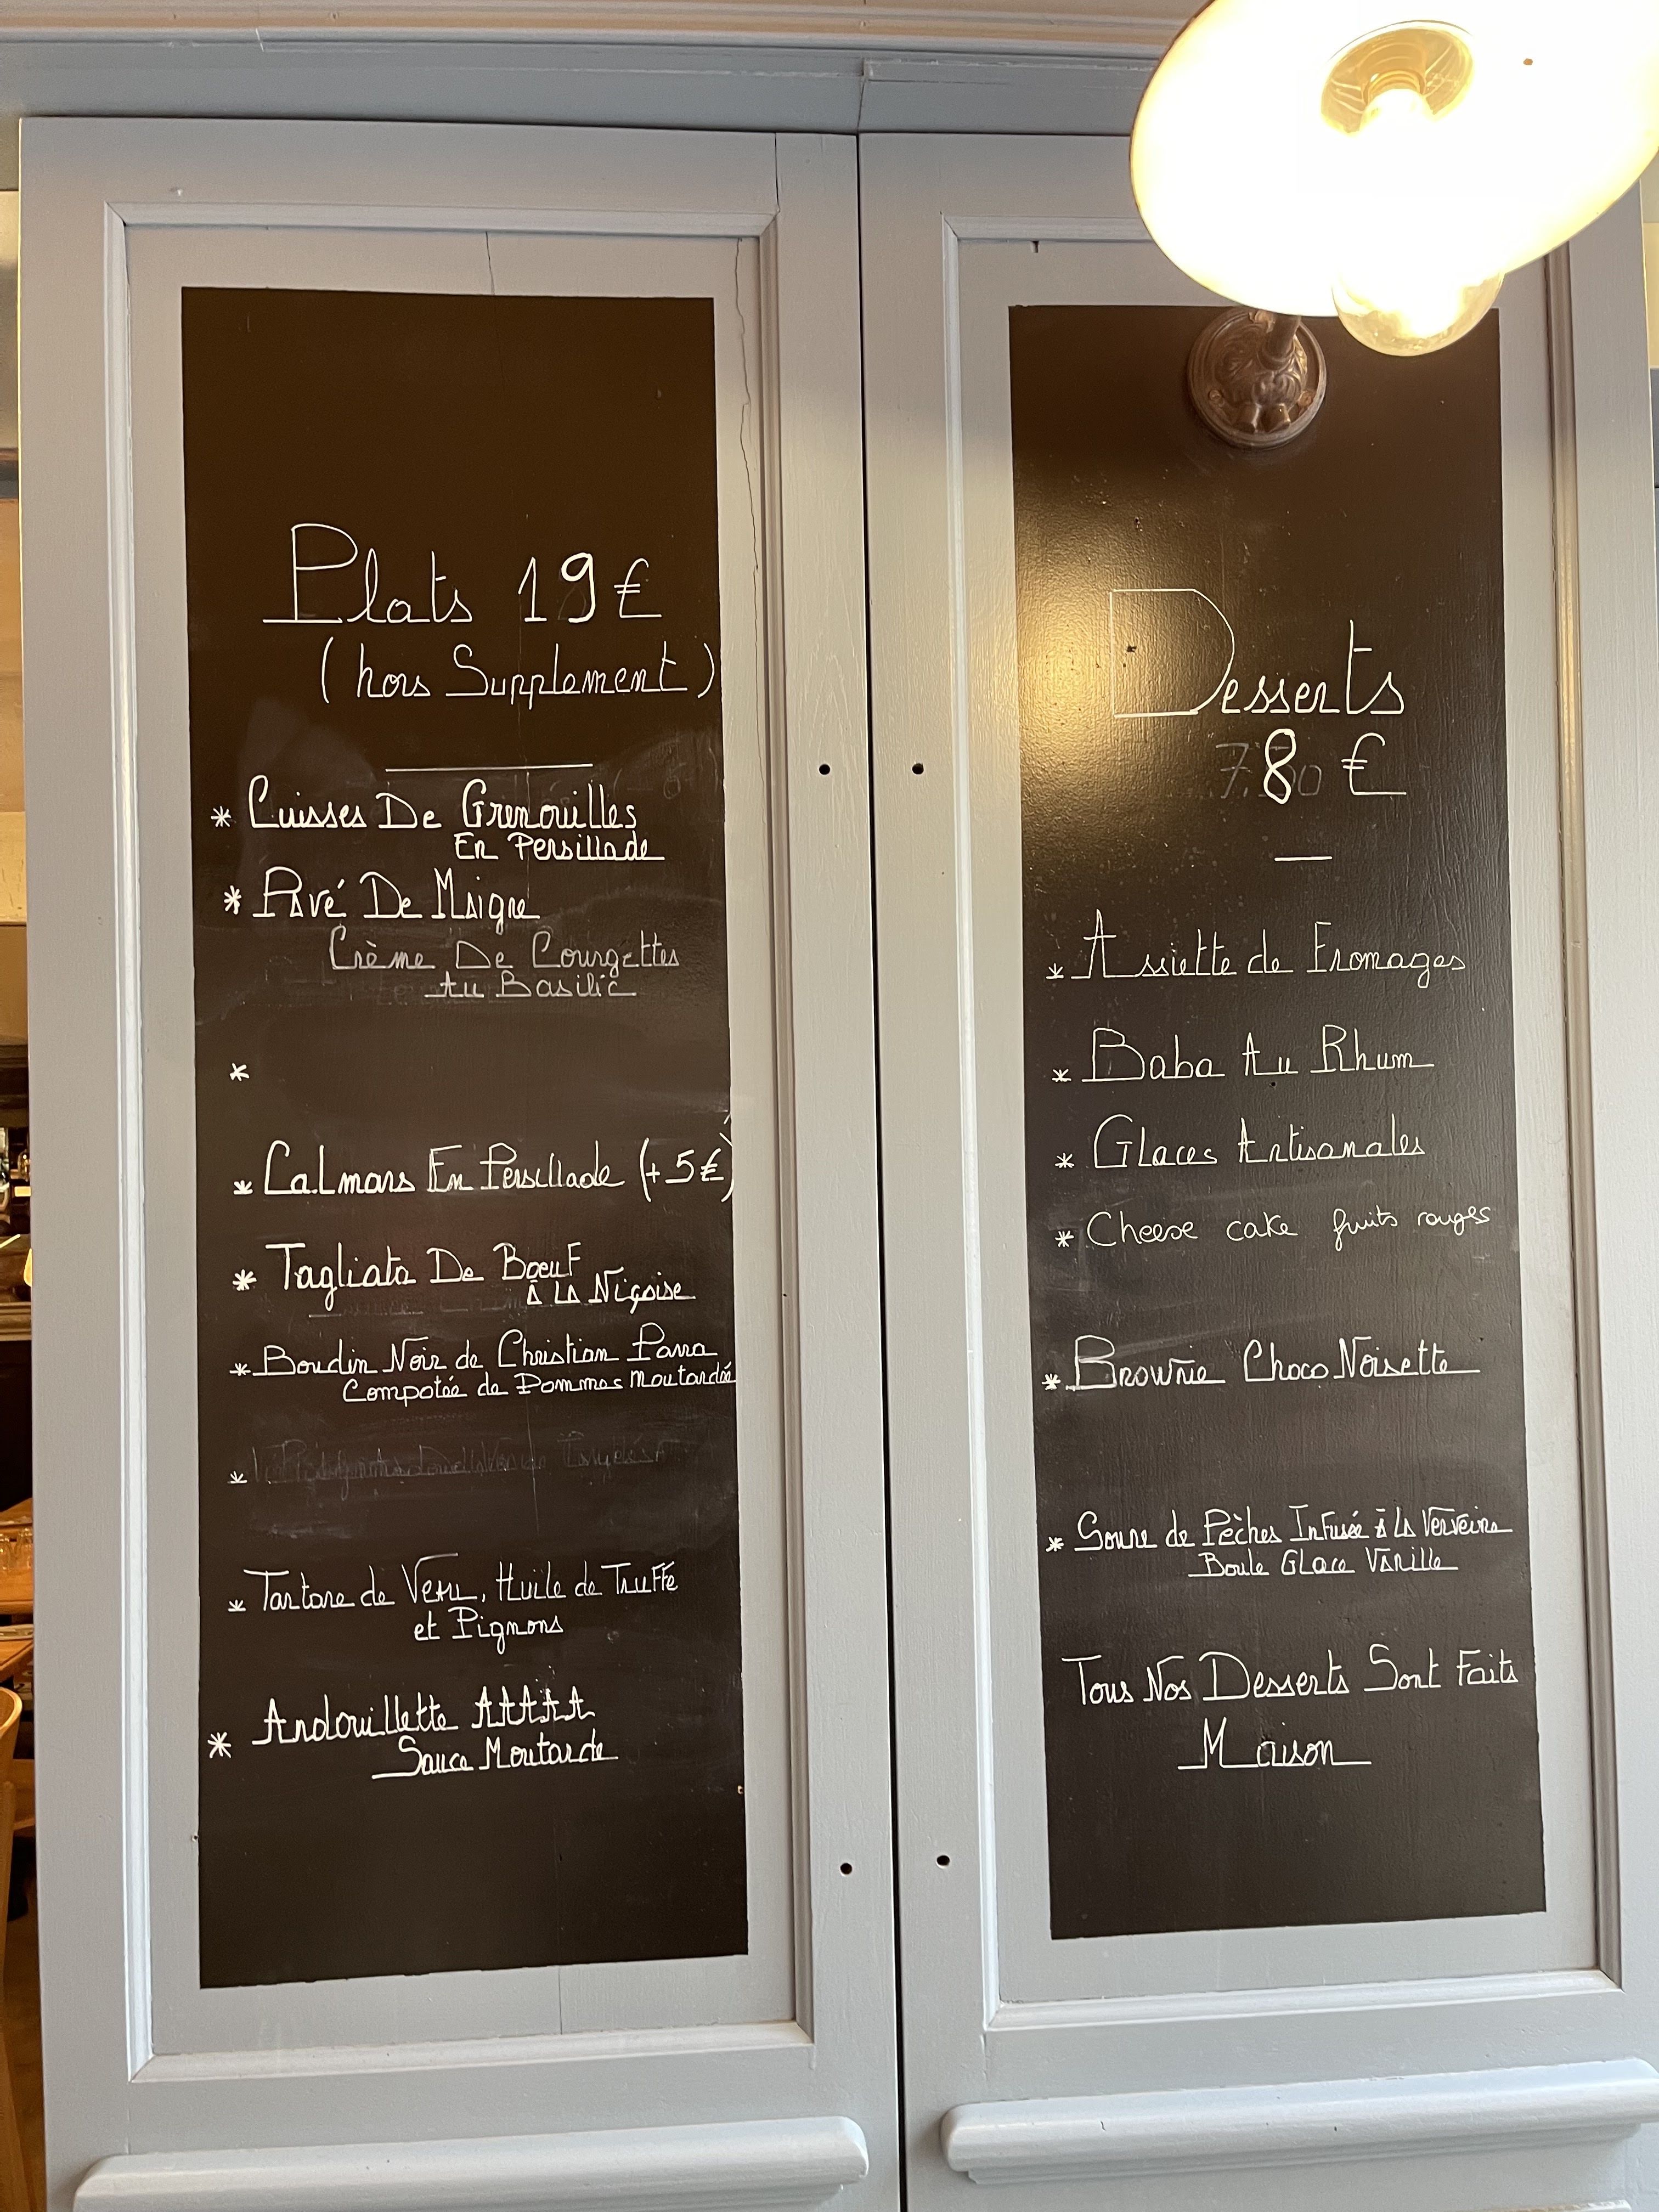 Plats 19€
(hors Supplement)
* Cuisses De Grenouilles
En Persillade
* Pavé De Maigre
Crème De Courgettes
Au Basilic
*
* Calmars En Persillade (+5€)
* Tagliata De Bœuf
À LA Niçoise
* Boudin Noir de Christian Parra
Compotée de Pommes Moutardée
*
* Tartare de Veau, Huile de Truffe
et Pignons
* Andouillette AAAAA
Sauce Moutarde
Desserts
8 €
* Assiette de Fromages
* Baba Au Rhum
* Glaces Artisanales
* Cheese cake fruits rouges
* Brownie Choco Noisette
* Soupe de Pêches Infusée à la Verveine
Boule Glace Vanille
Tous Nos Desserts Sont Faits
Maison